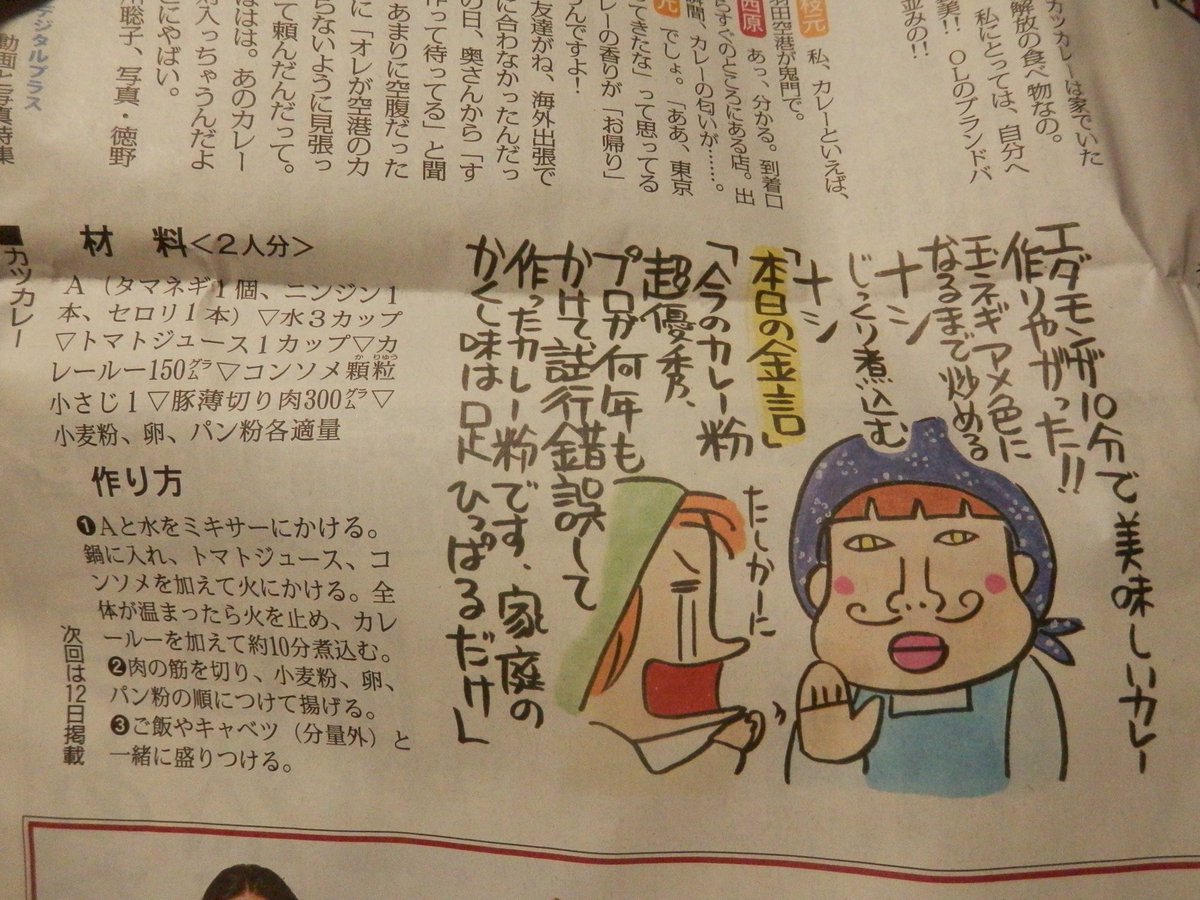 カツカレーは家でいた
解放の食べ物なの。
私にとっては、自分へ
美!! OLのブランドバ
並みの!!
枝元 私、カレーといえば、
羽田空港が鬼門で。
西原 あっ、分かる。到着口
らすぐのところにある店。出
瞬間、カレーの匂いが……。
元 でしょ。「ああ、東京
てきたな」って思ってる
レーの香りが「お帰り」
うんですよ!
友達がね、海外出張で
に合わなかったんだっ
の日、奥さんから「す
作って待ってる」と聞
あまりに空腹だった
に「オレが空港のカ
らないように見張っ
て頼んだんだって。
ははは。あのカレー
対入っちゃうんだよ
にやばい。
聡子、写真・徳野
デジタルプラス
動画と写真特集
エダモンが10分で美味しいカレー
作りやがった!!
玉ネギアメ色に
なるまで炒める
ナシ
じっくり煮込む
ナシ
「本日の金言」
「今のカレー粉
超優秀、
プロが何年も
かけて試行錯誤して
作ったカレー粉です、家庭の
かくし味は足ひっぱるだけ」
たしかーに
■カツカレー
材 料<2人分>
A(タマネギ1個、ニンジン1
本、セロリ1本)▽水3カップ
▽トマトジュース1カップ▽カ
レールー150㌘▽コンソメ顆粒
小さじ1▽豚薄切り肉300㌘▽
小麦粉、卵、パン粉各適量
作り方
❶Aと水をミキサーにかける。
鍋に入れ、トマトジュース、コ
ンソメを加えて火にかける。全
体が温まったら火を止め、カレ
ールーを加えて約10分煮込む。
❷肉の筋を切り、小麦粉、卵、
パン粉の順につけて揚げる。
❸ご飯やキャベツ(分量外)と
一緒に盛りつける。
次回は12日掲載